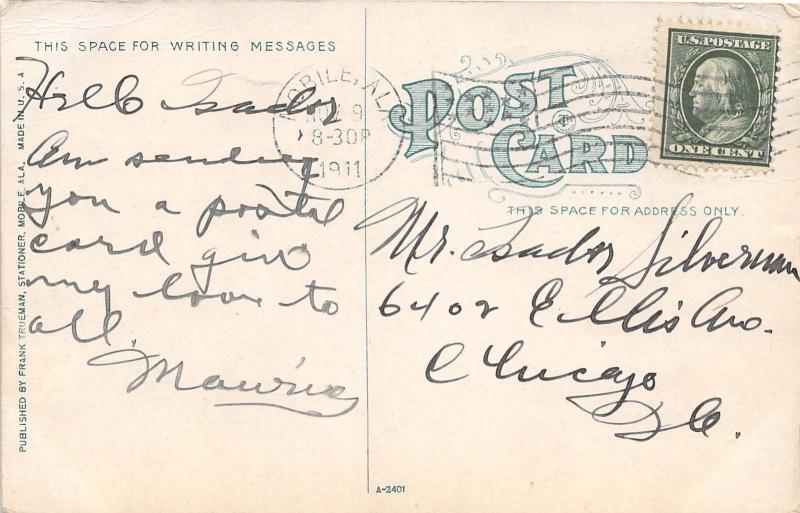 THIS SPACE FOR WRITING MESSAGES
Hello Isador
Am sending
you a postal
card give
my love to
all.
Maurice
PUBLISHED BY FRANK TRUEMAN, STATIONER, MOBILE, ALA. MADE IN U.S.A
MOBILE, ALA
NOV 9
8-30P
1911
U.S. POSTAGE
ONE CENT
POST
CARD
THIS SPACE FOR ADDRESS ONLY.
Mr. Isador Silverman
6402 Ellis Ave.
Chicago
Ill.
A-2401